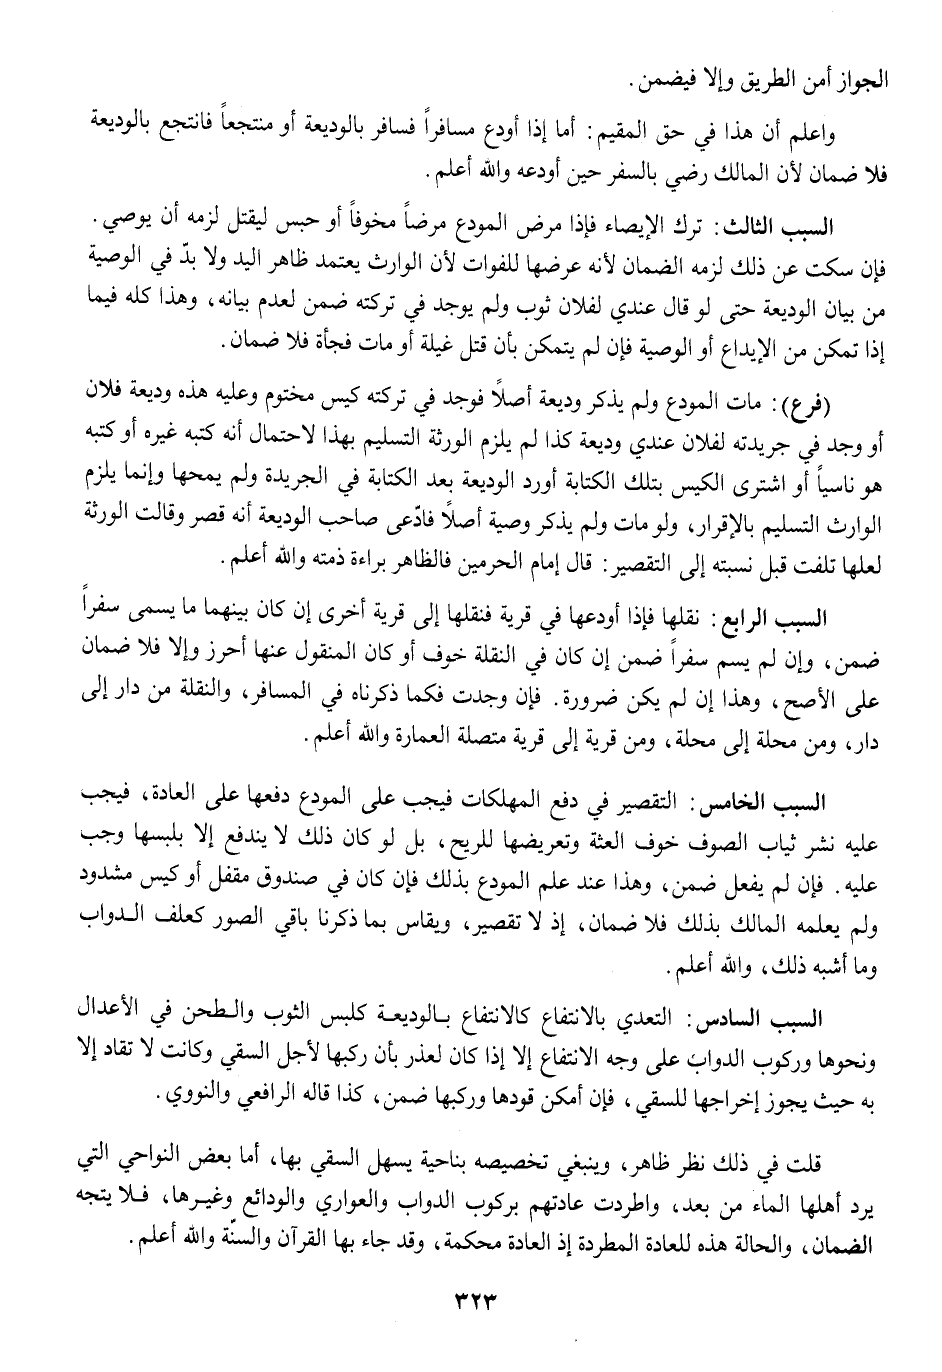 الجواز أمن الطريق وإلا فيضمن.
واعلم أن هذا في حق المقيم: أما إذا أودع مسافراً فسافر بالوديعة أو منتجعاً فانتجع بالوديعة
فلا ضمان لأن المالك رضي بالسفر حين أودعه والله أعلم.
السبب الثالث: ترك الإيصاء فإذا مرض المودع مرضاً مخوفاً أو حبس ليقتل لزمه أن يوصي.
فإن سكت عن ذلك لزمه الضمان لأنه عرضها للفوات لأن الوارث يعتمد ظاهر اليد ولا بدّ في الوصية
من بيان الوديعة حتى لو قال عندي لفلان ثوب ولم يوجد في تركته ضمن لعدم بيانه، وهذا كله فيما
إذا تمكن من الإيداع أو الوصية فإن لم يتمكن بأن قتل غيلة أو مات فجأة فلا ضمان.
(فرع): مات المودع ولم يذكر وديعة أصلاً فوجد في تركته كيس مختوم وعليه هذه وديعة فلان
أو وجد في جريدته لفلان عندي وديعة كذا لم يلزم الورثة التسليم بهذا لاحتمال أنه كتبه غيره أو كتبه
هو ناسياً أو اشترى الكيس بتلك الكتابة أورد الوديعة بعد الكتابة في الجريدة ولم يمحها وإنما يلزم
الوارث التسليم بالإقرار، ولو مات ولم يذكر وصية أصلاً فادّعى صاحب الوديعة أنه قصر وقالت الورثة
لعلها تلفت قبل نسبته إلى التقصير: قال إمام الحرمين فالظاهر براءة ذمته والله أعلم.
السبب الرابع: نقلها فإذا أودعها في قرية فنقلها إلى قرية أخرى إن كان بينهما ما يسمى سفراً
ضمن، وإن لم يسم سفراً ضمن إن كان في النقلة خوف أو كان المنقول عنها أحرز وإلا فلا ضمان
على الأصح، وهذا إن لم يكن ضرورة. فإن وجدت فكما ذكرناه في المسافر، والنقلة من دار إلى
دار، ومن محلة إلى محلة، ومن قرية إلى قرية متصلة العمارة والله أعلم.
السبب الخامس: التقصير في دفع المهلكات فيجب على المودع دفعها على العادة، فيجب
عليه نشر ثياب الصوف خوف العثة وتعريضها للريح، بل لو كان ذلك لا يندفع إلا بلبسها وجب
عليه. فإن لم يفعل ضمن، وهذا عند علم المودع بذلك فإن كان في صندوق مقفل أو كيس مشدود
ولم يعلمه المالك بذلك فلا ضمان، إذ لا تقصير، ويقاس بما ذكرنا باقي الصور كعلف الدواب
وما أشبه ذلك، والله أعلم.
السبب السادس: التعدي بالانتفاع كالانتفاع بالوديعة كلبس الثوب والطحن في الأعدال
ونحوها وركوب الدواب على وجه الانتفاع إلا إذا كان لعذر بأن ركبها لأجل السقي وكانت لا تقاد إلا
به حيث يجوز إخراجها للسقي، فإن أمكن قودها وركبها ضمن، كذا قاله الرافعي والنووي.
قلت في ذلك نظر ظاهر، وينبغي تخصيصه بناحية يسهل السقي بها، أما بعض النواحي التي
يرد أهلها الماء من بعد، واطردت عادتهم بركوب الدواب والعواري والودائع وغيرها، فلا يتجه
الضمان، والحالة هذه للعادة المطردة إذ العادة محكمة، وقد جاء بها القرآن والسنّة والله أعلم.
٣٢٣